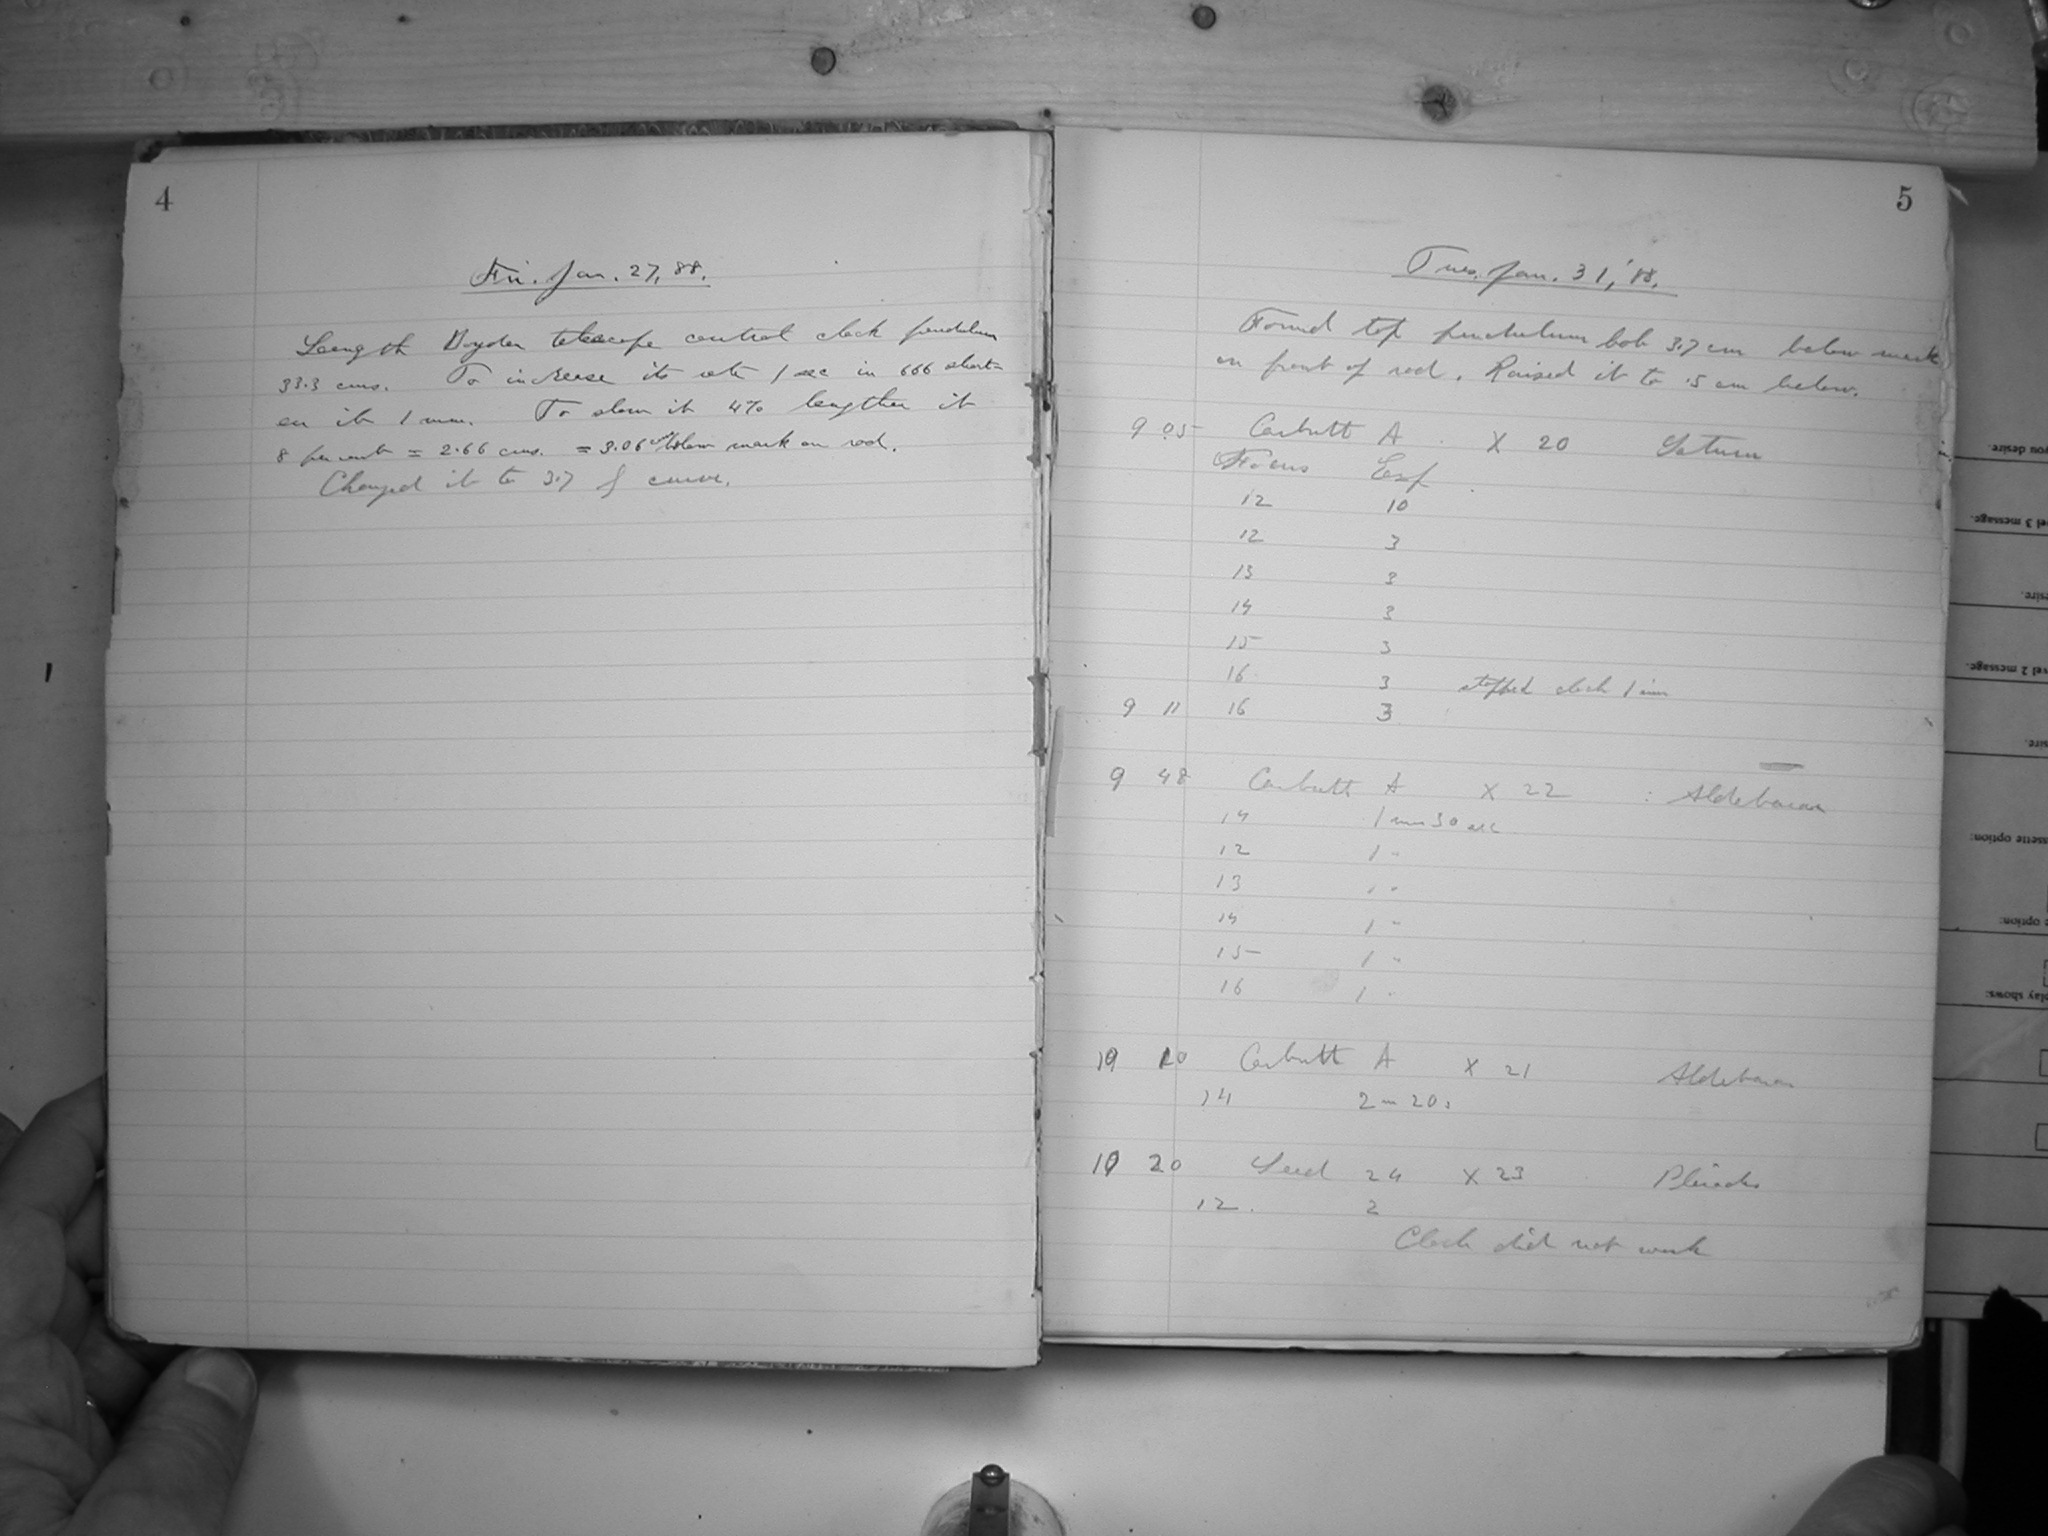 4
Fri. Jan. 27, 88.
Length Boyden telescope control clock pendulum
33.3 cms. To increase its rate 1 sec in 666 short-
en it 1 mm. To slow it 4% lengthen it
8 per cent = 2.66 cms. = 3.06 cm below mark on rod.
Changed it to 3.7 of curve.
5
Tues. Jan. 31, '88.
Found top pendulum bob 3.7 cm below mark
on front of rod. Raised it to .5 cm below.
9 05 Carbutt A X 20 Saturn
Focus Exp
12 10
12 3
13 3
14 3
15 3
16 3 stopped clock 1 min
9 11 16 3
9 48 Carbutt A X 22 : Aldebaran
14 1 min 30 sec
12 1 "
13 1 "
14 1 "
15 1 "
16 1 "
10 10 Carbutt A X 21 Aldebaran
14 2 m 20 s
10 20 Seed 24 X 23 Pleiades
12. 2
Clock did not work
you desire.
vel 3 message.
esire.
vel 2 message.
sire.
ssette option:
e option:
play shows: